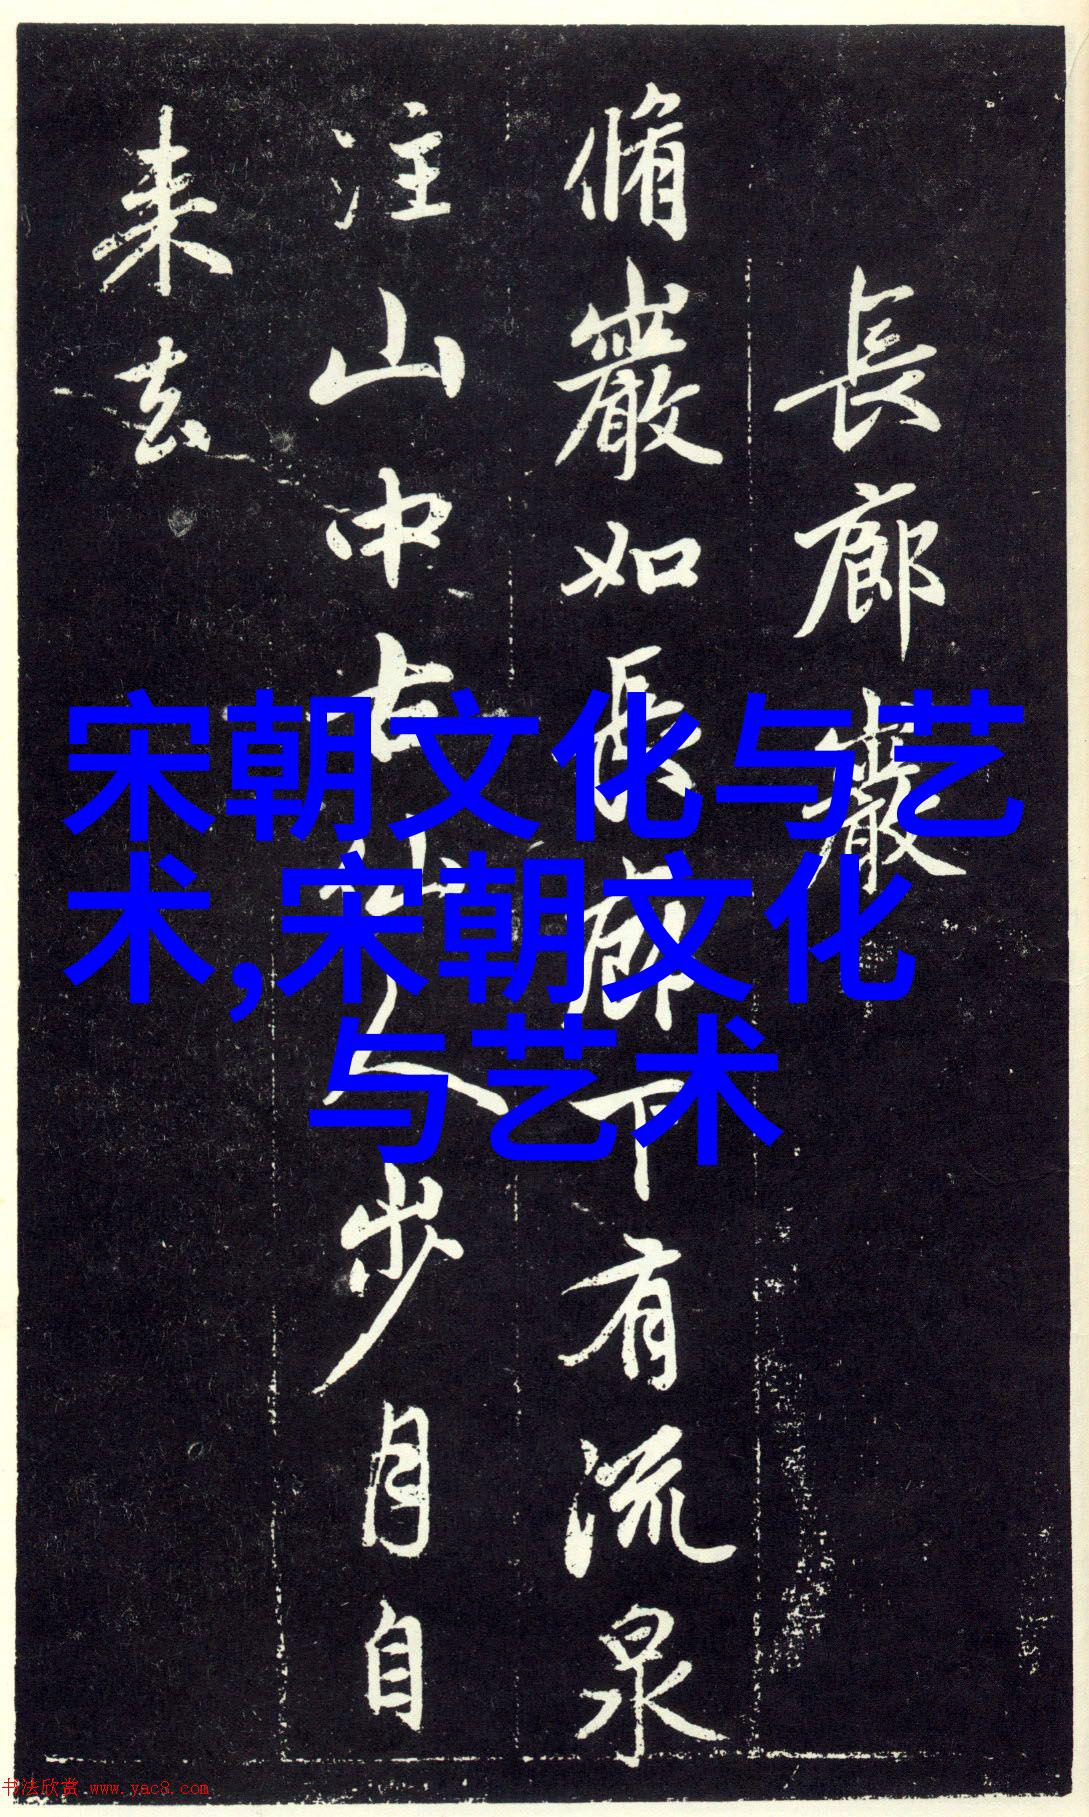 長廊巖
脩巖如長廊下有流泉
注山中古仙人步月自
来去
宋朝文化与艺
术,宋朝文化
与艺术
书法欣赏 www.yac8.com